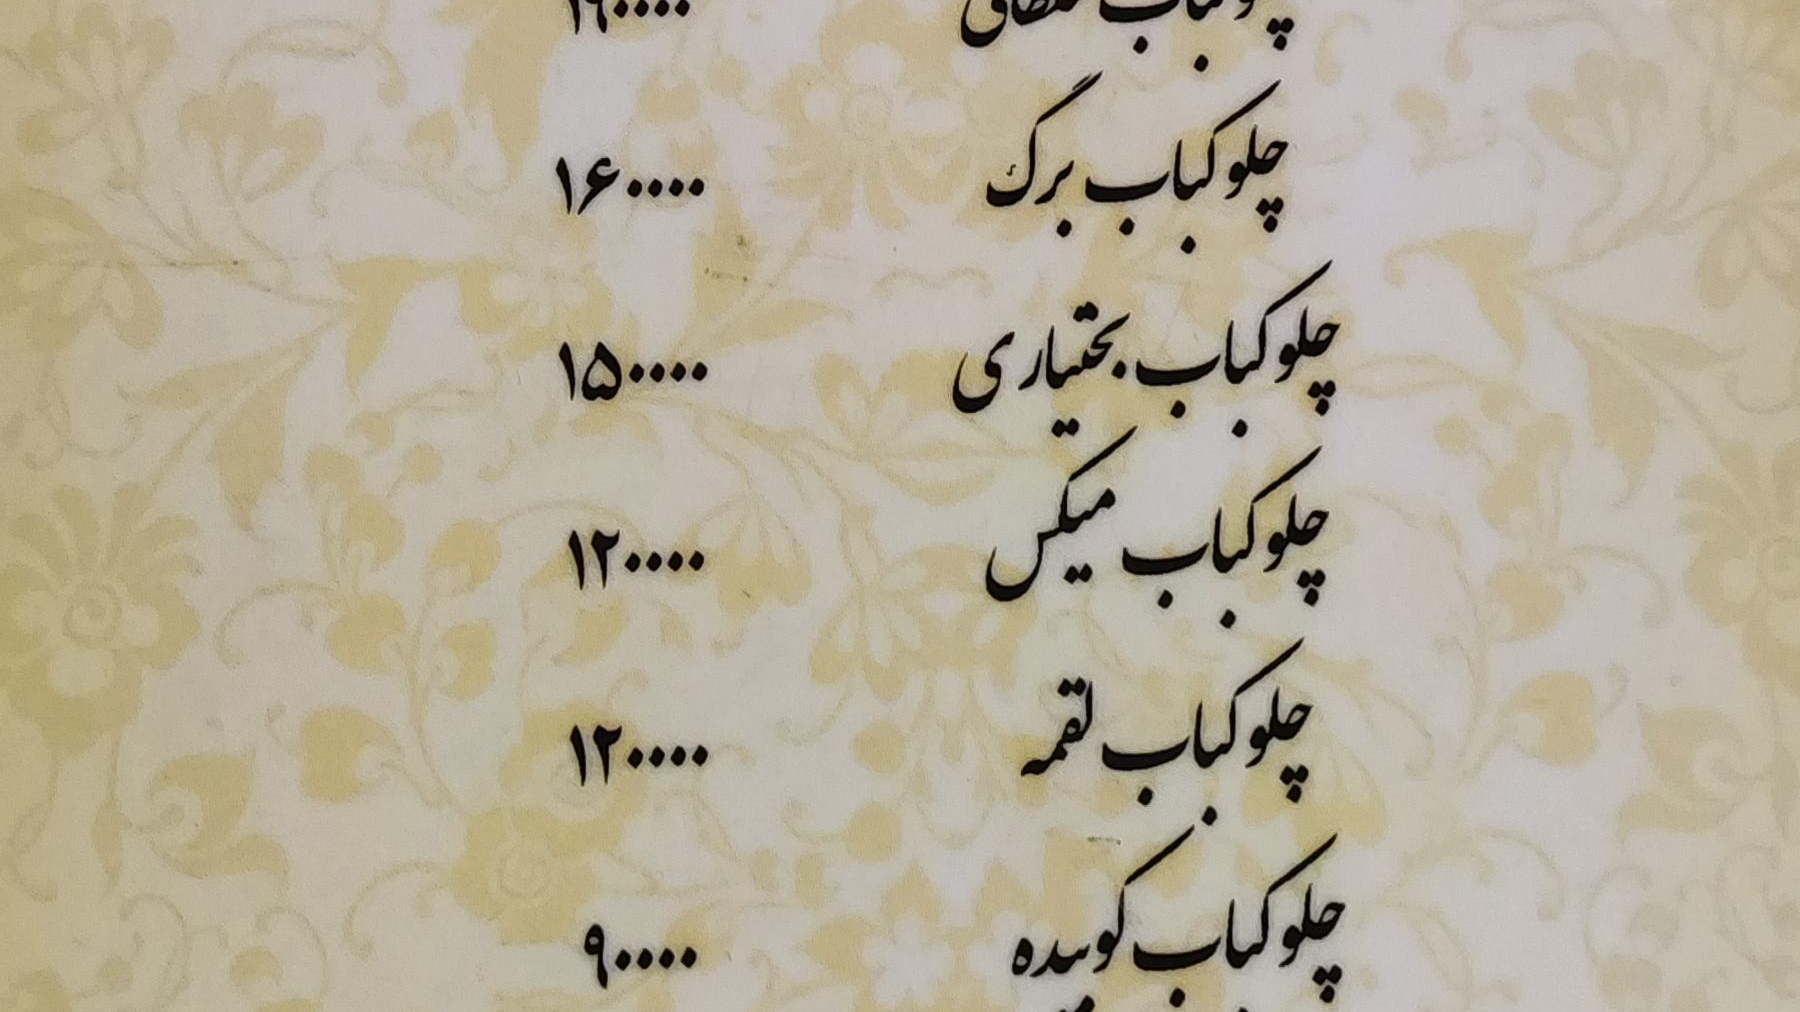 چلوکباب سلطانی ۱۹۰۰۰۰
چلوکباب برگ ۱۶۰۰۰۰
چلوکباب بختیاری ۱۵۰۰۰۰
چلوکباب میکس ۱۲۰۰۰۰
چلوکباب لقمه ۱۲۰۰۰۰
چلوکباب کوبیده ۹۰۰۰۰